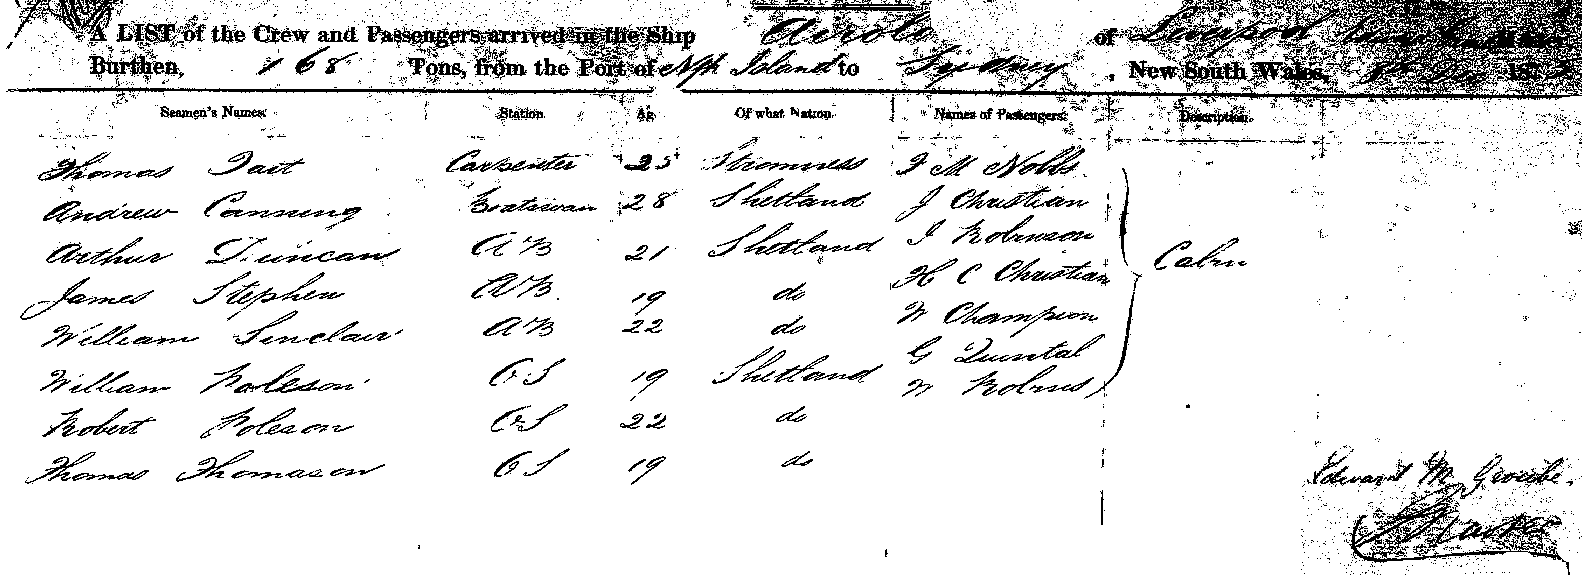 A LIST of the Crew and Passengers arrived in the Ship Airolo of Liverpool
Burthen, 168 Tons, from the Port of Nfk Island to Sydney, New South Wales, 187
Seamen's Names. Station. Age Of what Nation. Names of Passengers. Description.
Thomas Tait Carpenter 25 Stromness F M Nobbs
Andrew Canning Boatswan 28 Shetland J Christian
Arthur Duncan AB 21 Shetland I Robinson
James Stephen AB. 19 do H C Christian Cabin
William Sinclair AB 22 do W Champion
G Quintal
William Poleson OS 19 Shetland W
Robert Poleson OS 22 do
Thomas Thomason OS 19 do
Edward M